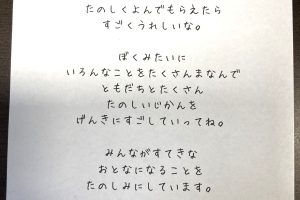 たのしくよんでもらえたら
すごくうれしいな。
ぼくみたいに
いろんなことをたくさんまなんで
ともだちとたくさん
たのしいじかんを
げんきにすごしていってね。
みんながすてきな
おとなになることを
たのしみにしています。